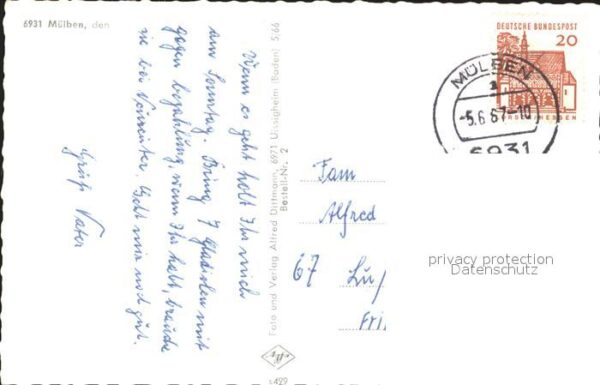 6931 Mülben, den
Wenn es geht holt Ihr mich
am Sonntag. Bring 7 Gladiolen mit
gegen bezahlung, wenn Ihr habt, brauche
sie bei Geht mir noch gut.
Gruß Vater
Foto und Verlag Alfred Dittmann, 6971 Uissigheim (Baden) 5/66
Bestell-Nr. 2
DEUTSCHE BUNDESPOST
20
MÜLBEN
a
-5.6.67-10
6931
Fam
Alfred
67 Lu/
Fri
privacy protection
Datenschutz